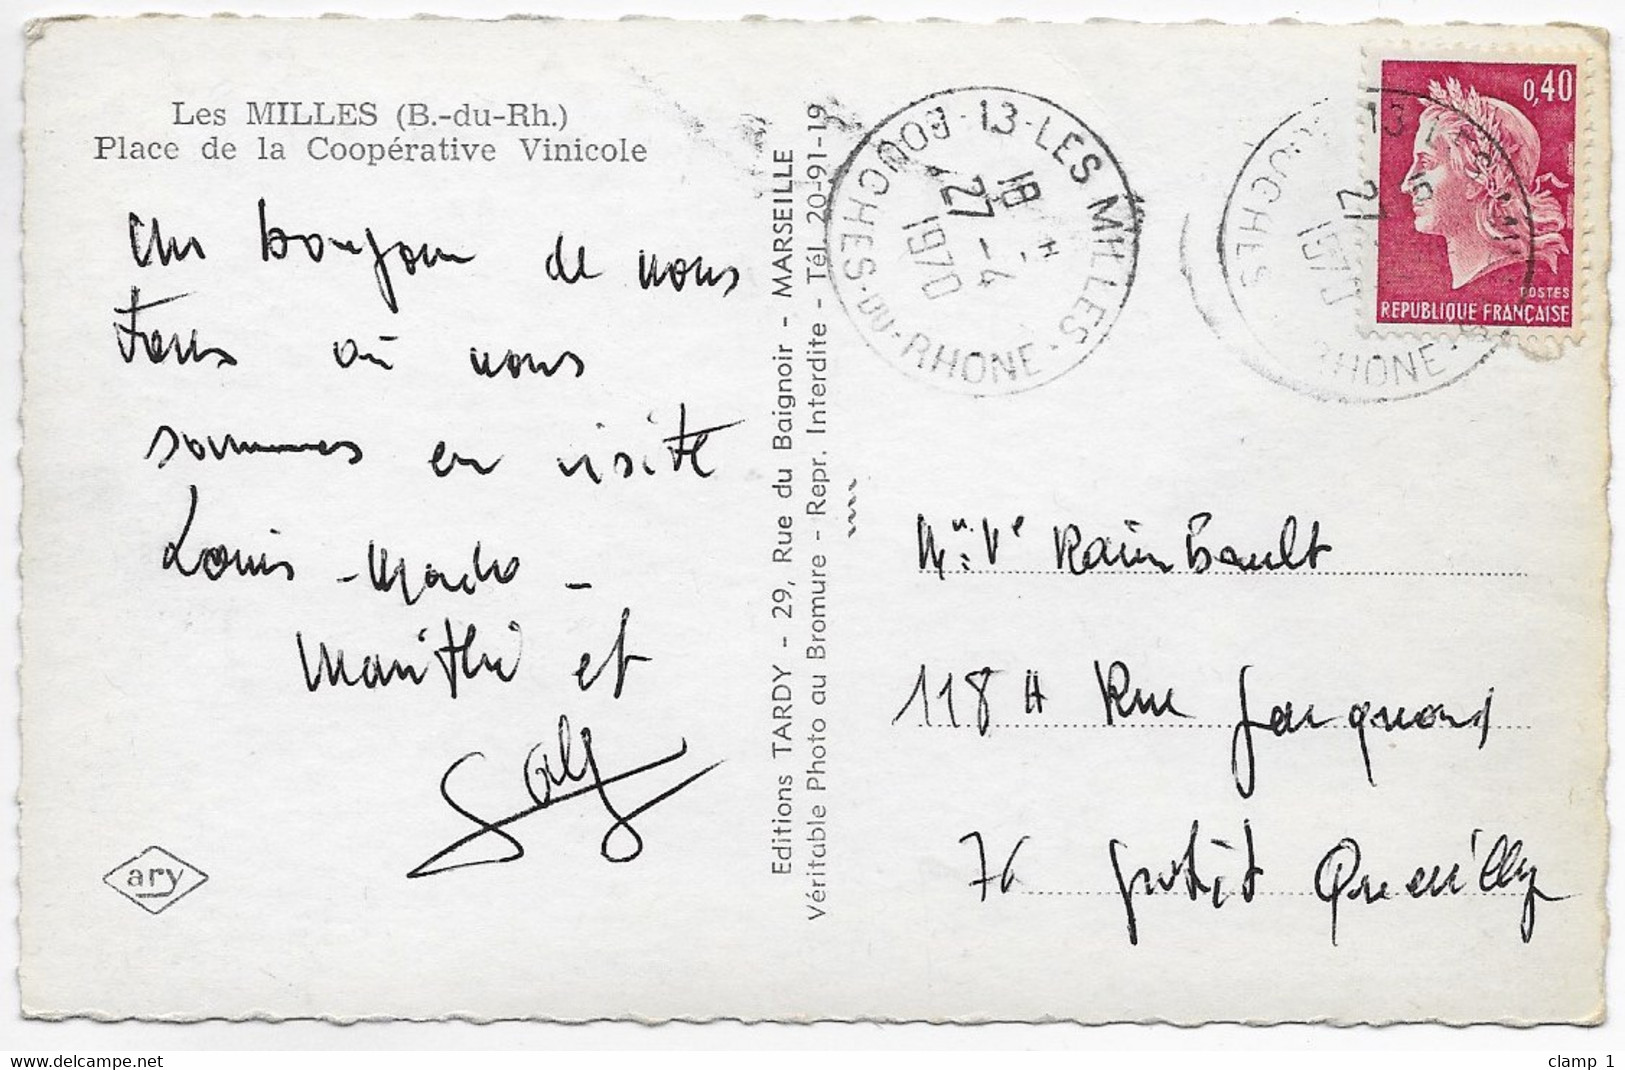 Les MILLES (B.-du-Rh.)
Place de la Coopérative Vinicole
Un bonjour de nous
tous où nous
sommes en visite
Louis - Mado -
Marithé et
ary
Editions TARDY - 29, Rue du Baignoir - MARSEILLE
Véritable Photo au Bromure - Repr. Interdite - Tél. 20-91-19
13-LES MILLES
BOUCHES-DU-RHONE
18 H
27-4
1970
0,40
POSTES
REPUBLIQUE FRANÇAISE
Vᵉ Raimbault
118 H Rue Jacquard
76 Petit Quevilly
clamp 1